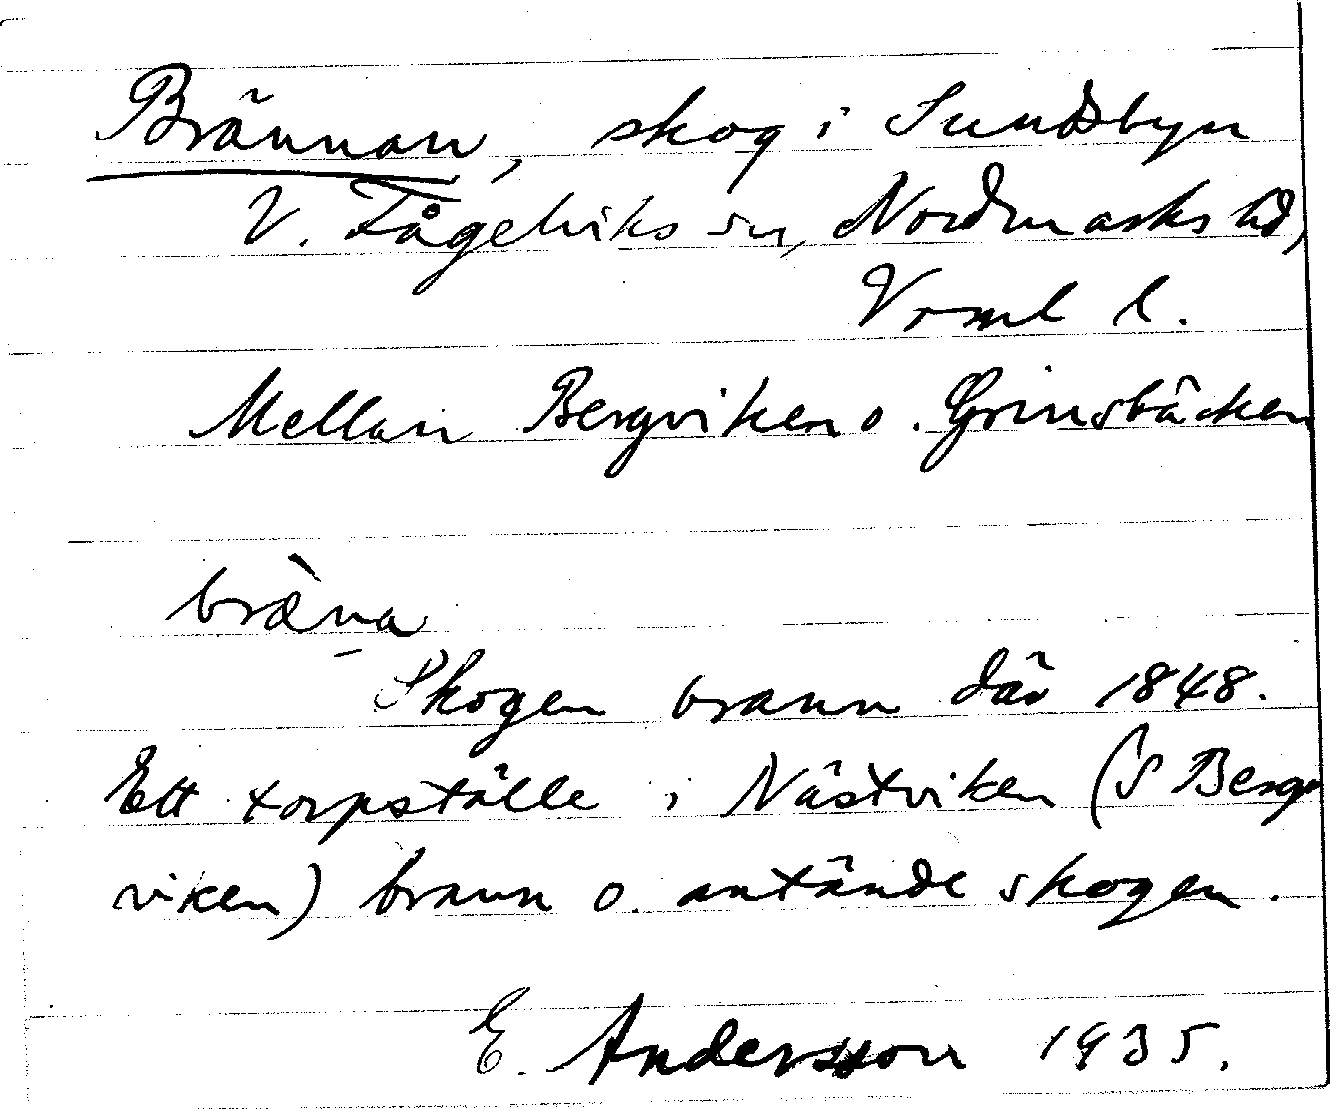 Brännan, skog i Sundsbyn
V. Fågelviks sn, Nordmarks hd,
Vrml l.
Mellan Bergviken o. Grinsbäcken
bræ̀na
Skogen brann där 1848.
Ett torpställe i Nästviken (S Berg
viken) brann o. antände skogen.
E. Andersson 1935.